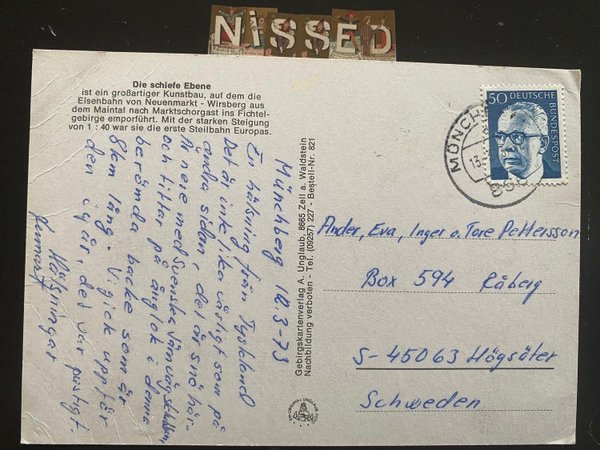 NiSSED
Die schiefe Ebene
ist ein großartiger Kunstbau, auf dem die
Eisenbahn von Neuenmarkt - Wirsberg aus
dem Maintal nach Marktschorgast ins Fichtel-
gebirge emporführt. Mit der starken Steigung
von 1 : 40 war sie die erste Steilbahn Europas.
Münchberg 12.3-73
En hälsning från Tyskland
Det är inte lika vårligt som på
andra sidan, det är snö här.
Är nere med Svenska Järnvägsklubben
och tittar på ånglok i denna
berömda backe som är
8km lång. Vi gick upp för
den igår, det var pustigt.
Hälsningar
Gebirgskartenverlag A. Unglaub, 8665 Zell a. Waldstein
Nachbildung verboten - Tel. (09257) 227 - Bestell-Nr. 821
50 DEUTSCHE BUNDESPOST
MÜNCH
Ander, Eva, Inger o. Tore Pettersson
Box 594 Råberg
S-45063 Högsäter
Schweden